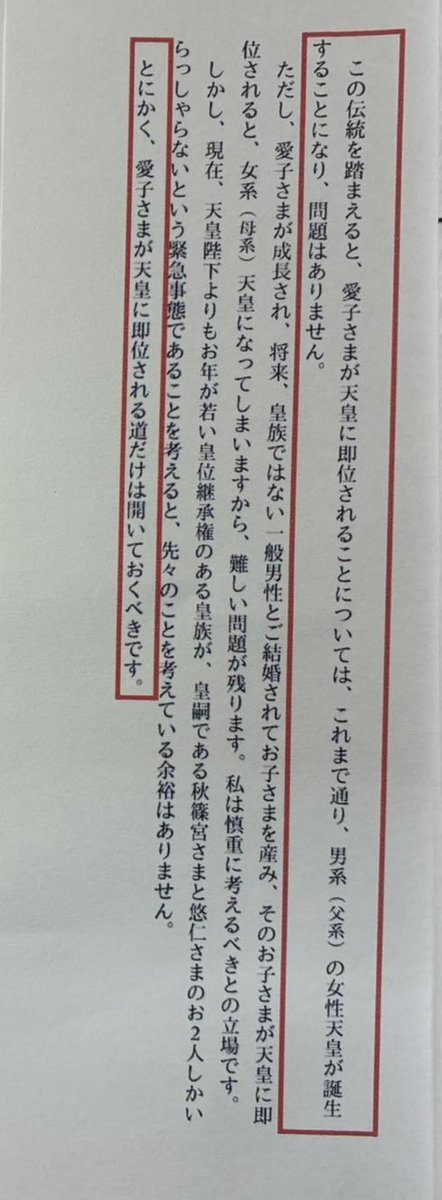 この伝統を踏まえると、愛子さまが天皇に即位されることについては、これまで通り、男系（父系）の女性天皇が誕生
することになり、問題はありません。
ただし、愛子さまが成長され、将来、皇族ではない一般男性とご結婚されてお子さまを産み、そのお子さまが天皇に即
位されると、女系（母系）天皇になってしまいますから、難しい問題が残ります。私は慎重に考えるべきとの立場です。
しかし、現在、天皇陛下よりもお年が若い皇位継承権のある皇族が、皇嗣である秋篠宮さまと悠仁さまのお2人しかい
らっしゃらないという緊急事態であることを考えると、先々のことを考えている余裕はありません。
とにかく、愛子さまが天皇に即位される道だけは開いておくべきです。